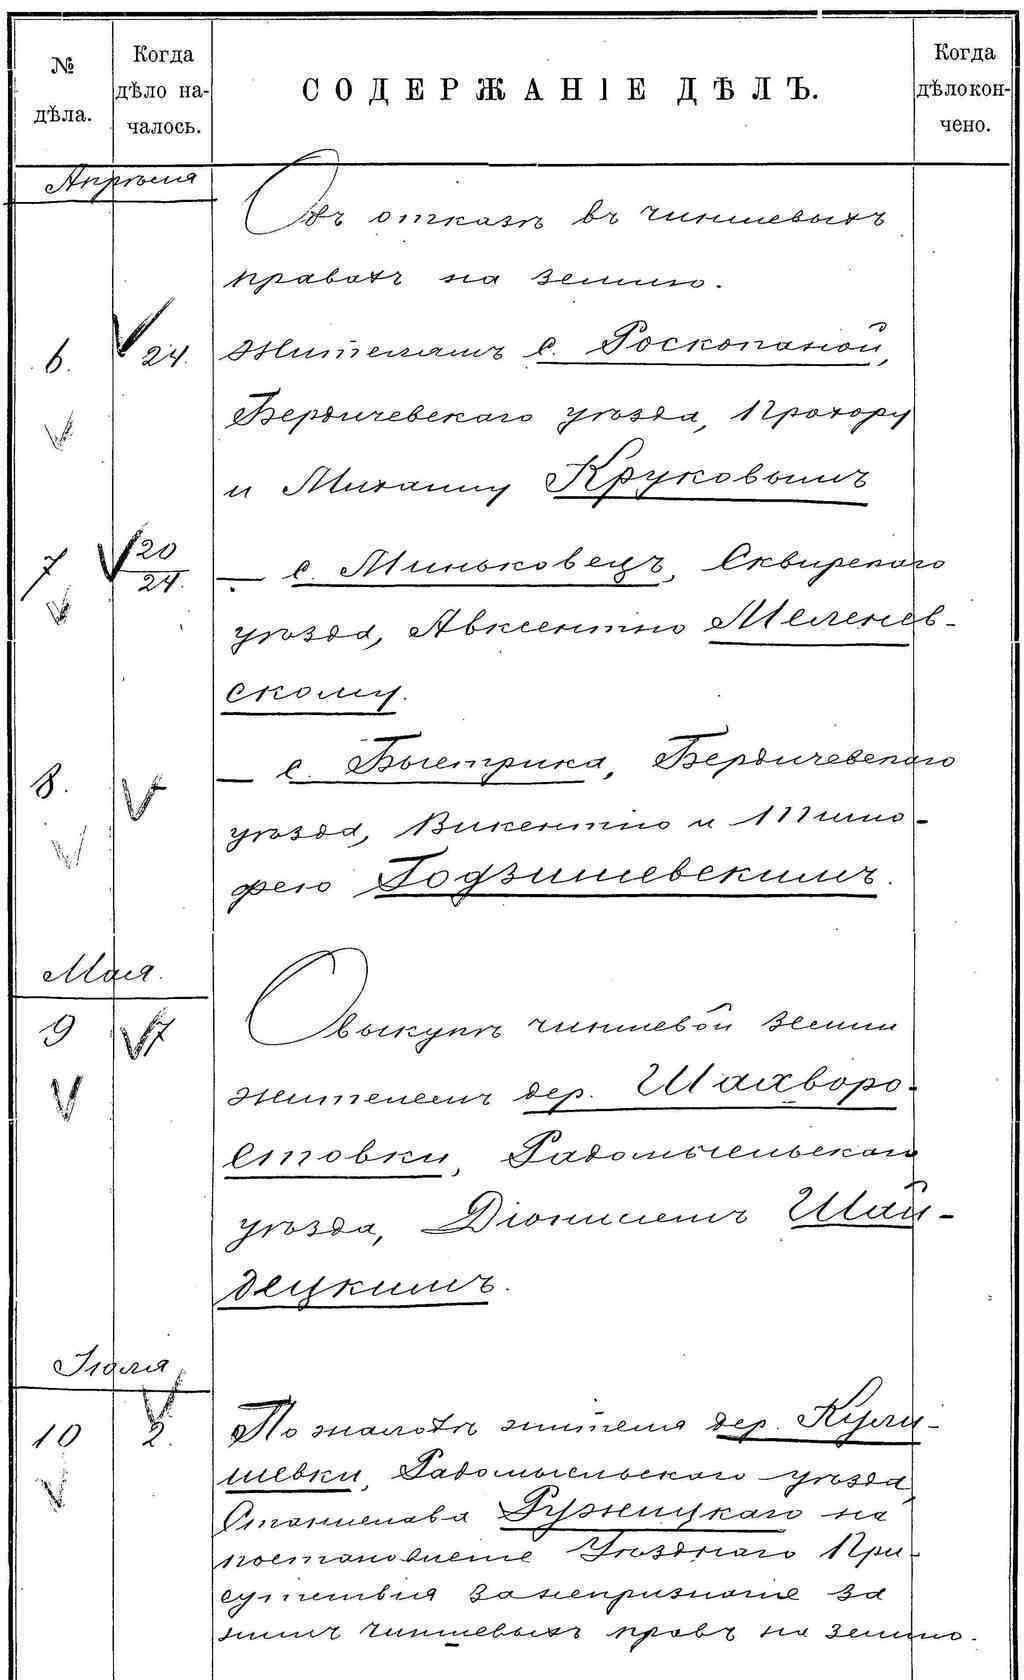 № дѣла.
Когда дѣло на-
чалось.
СОДЕРЖАНІЕ ДѢЛЪ.
Когда дѣло кон-
чено.
Апрѣля
Объ отказѣ въ чиншевыхъ
правахъ на землю.
6. 24. Жителямъ с. Роскопаной,
Бердичевскаго уѣзда, Прохору
и Михаилу Круковымъ
7 20/24. — с. Миньковецъ, Сквирскаго
уѣзда, Авксентію Меленев-
скому.
8. — с. Быстрика, Бердичевскаго
уѣзда, Викентію и Тимо-
фею Годзишевскимъ.
Мая.
9 7 О выкупѣ чиншевой земли
жителемъ дер. Шахворо-
стовки, Радомысльскаго
уѣзда, Діонисіемъ Шай-
децкимъ.
Іюля
10 2. По жалобѣ жителя дер. Кули-
шевки, Радомысльскаго уѣзда,
Станислава Ружицкаго на
постановленіе Уѣзднаго При-
сутствія за непризнаніе за
нимъ чиншевыхъ правъ на землю.